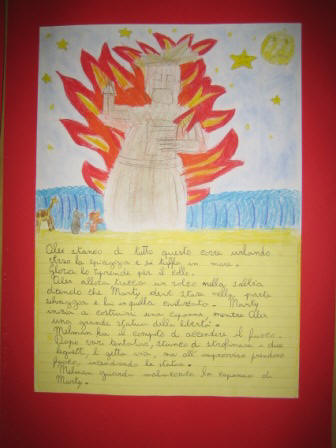 Alex stanco di tutto questo corre urlando
verso la spiaggia e si tuffa in mare.
Gloria lo riprende per il collo.
Alex allora traccia un solco nella sabbia
dicendo che Marty deve stare nella parte
selvaggia e lui in quella civilizzata. Marty
inizia a costruirsi una capanna, mentre Alex
una grande statua della libertà.
Melman ha il compito di accendere il fuoco.
Dopo vari tentativi, stanco di strofinare i due
legnetti, li getta via, ma all'improvviso prendono
fuoco, incendiando la statua.
Melman guarda la capanna di
Marty.